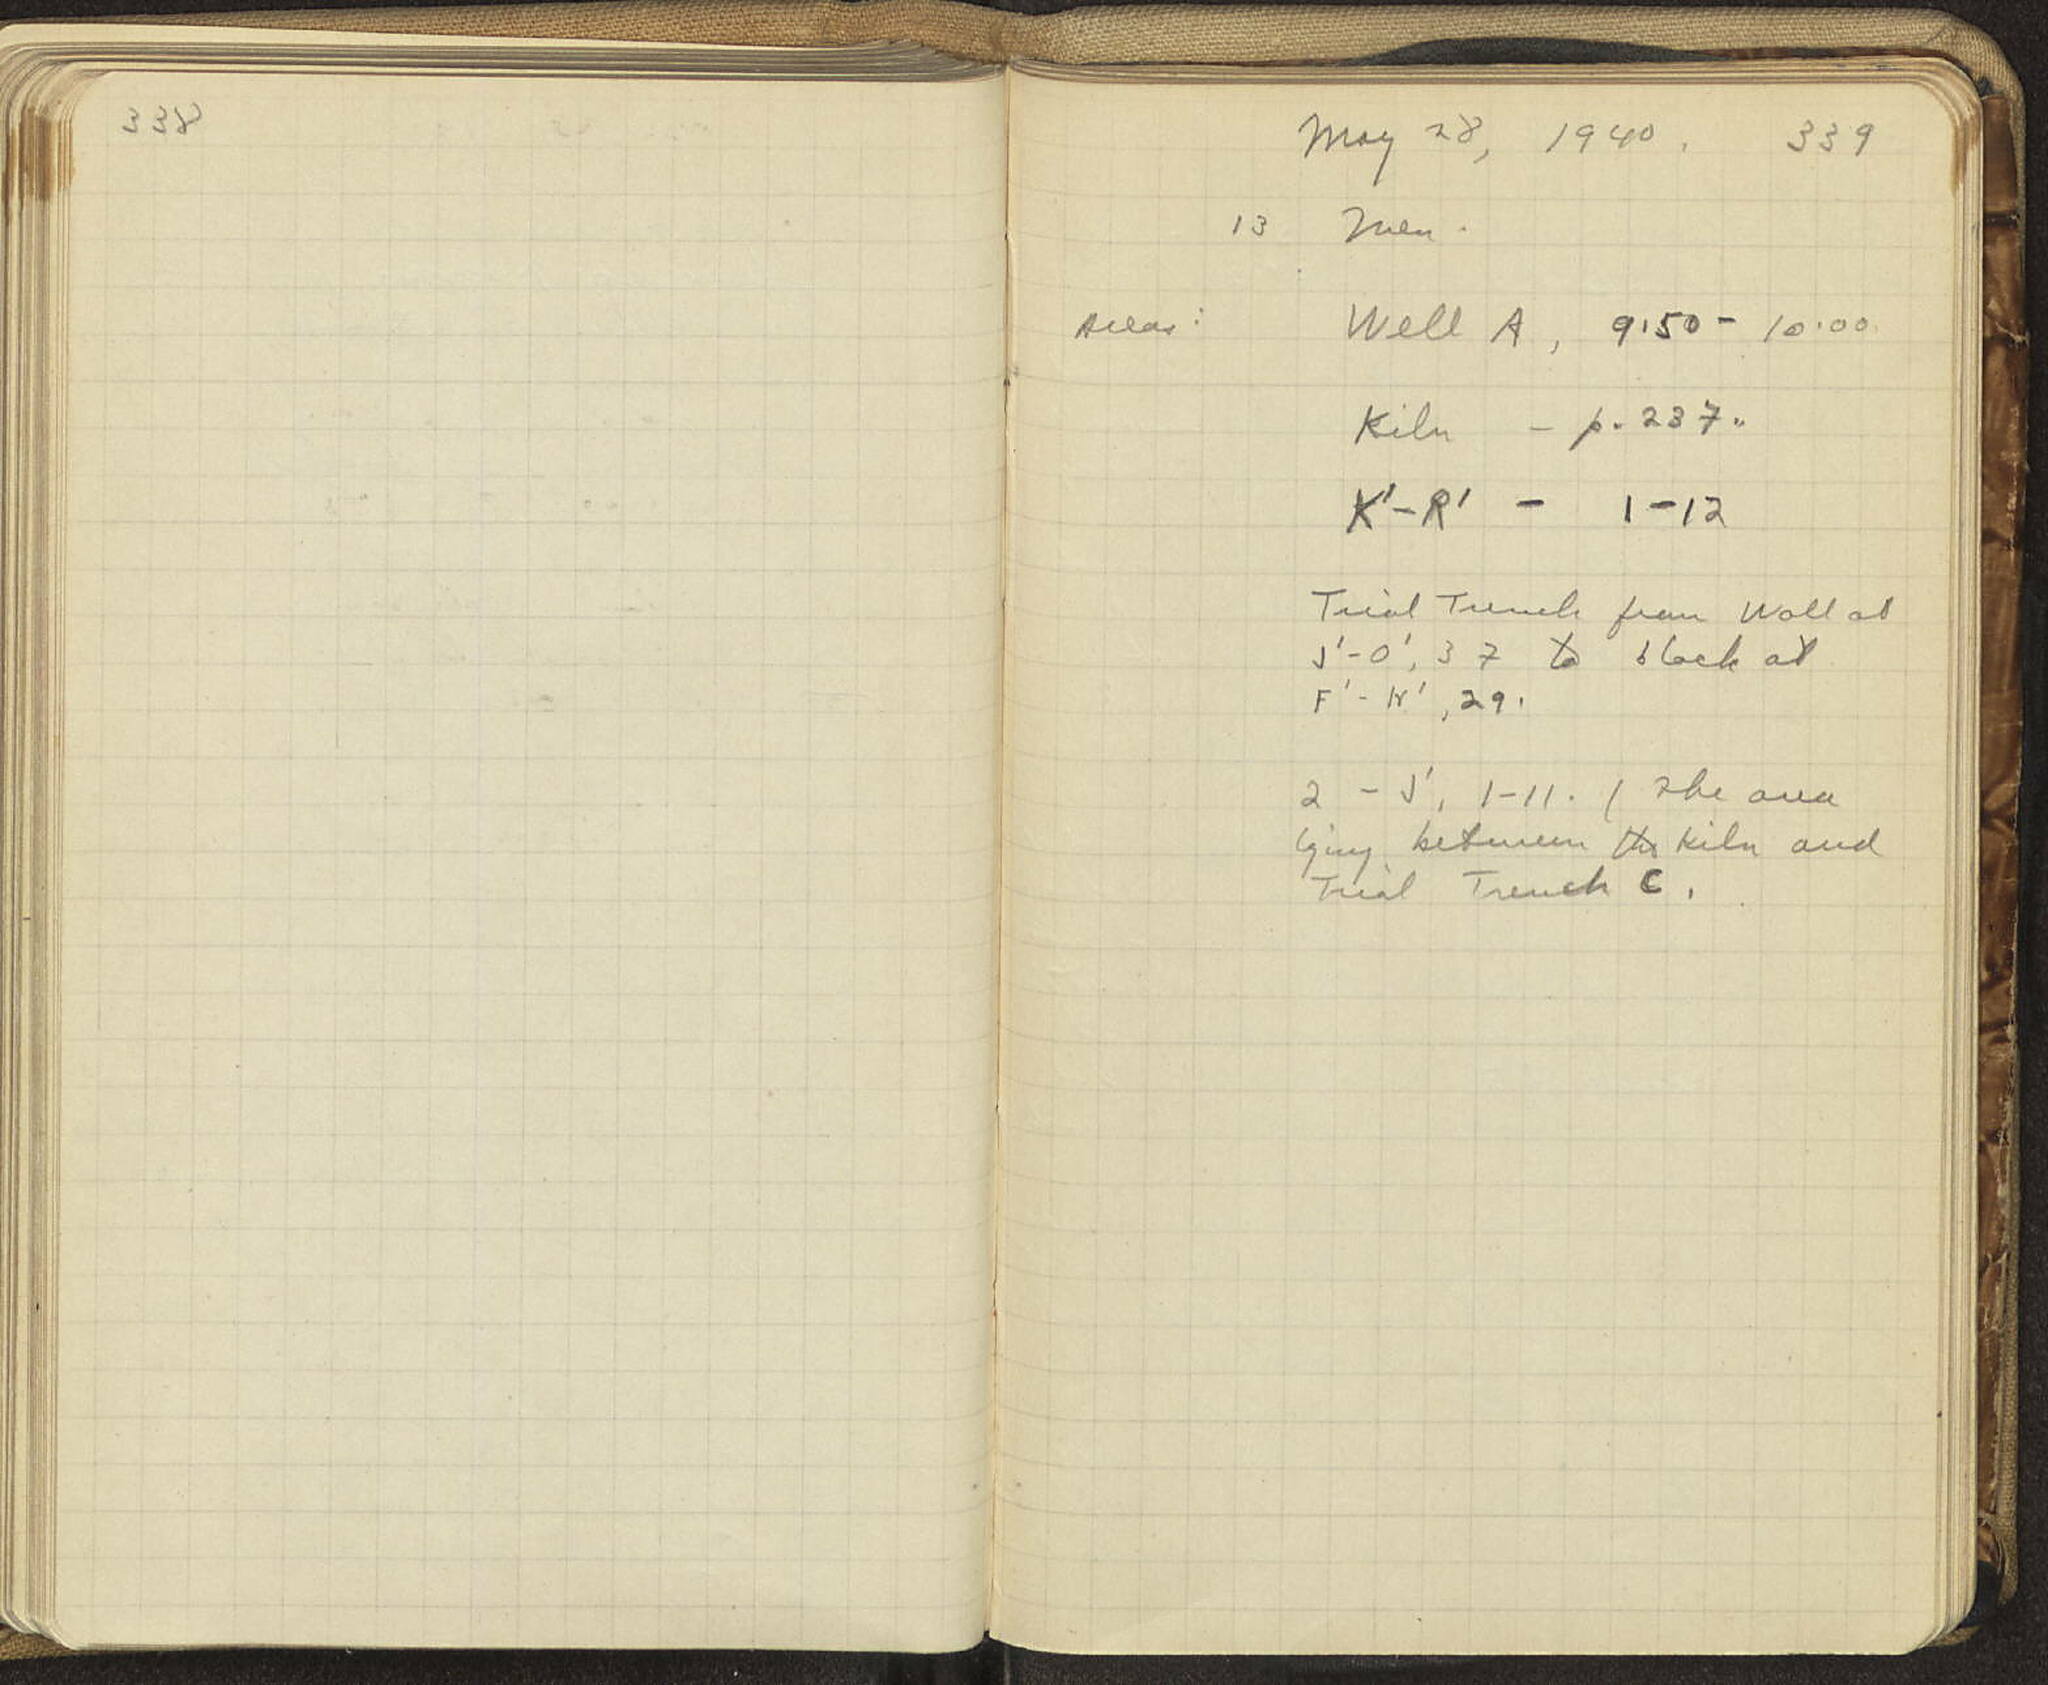 338
May 28, 1940. 339
13 Men.
Areas: Well A, 9.50 - 10.00.
Kiln - p. 237.
K'-R' - 1-12
Trial Trench from Wall at
J'-O', 37 to block at
F'-H', 29.
2 - J', 1-11. ( The area
lying between the Kiln and
Trial Trench C.